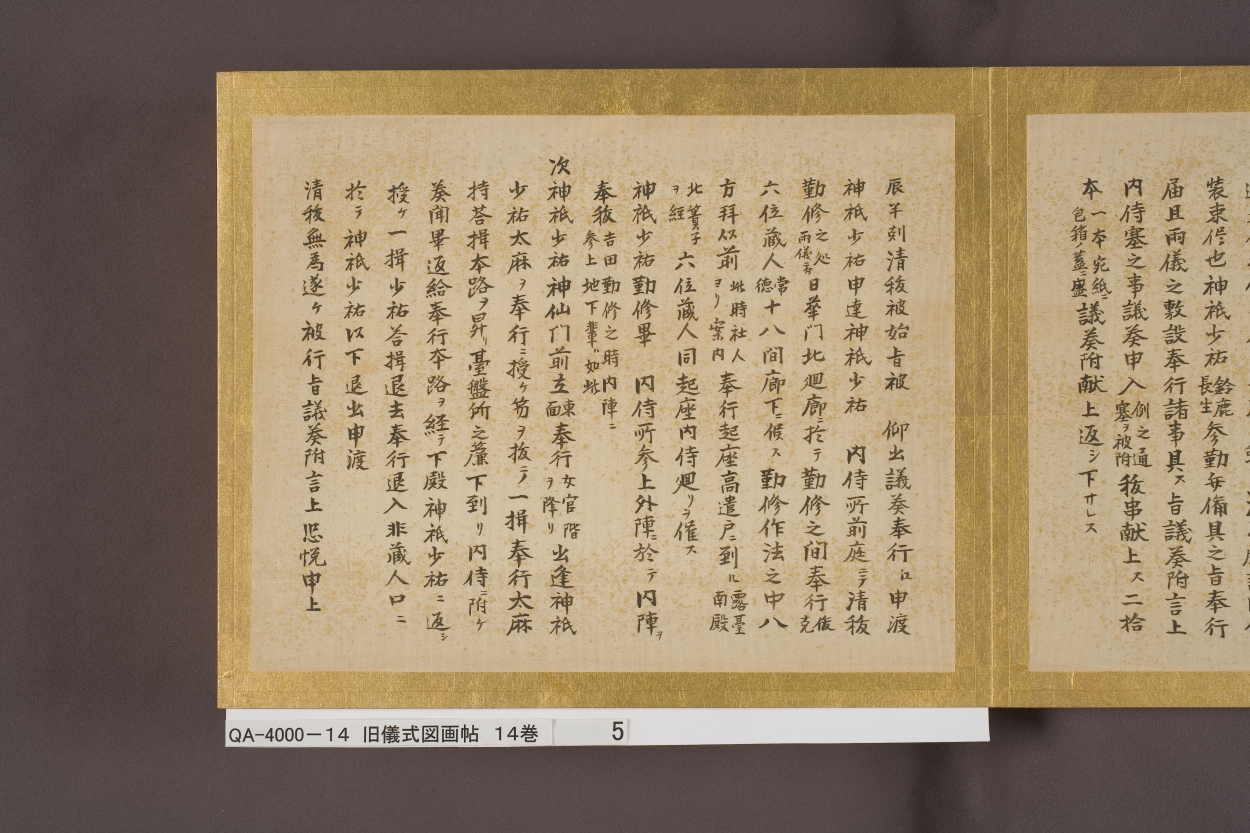 装束侭也神祇少祐鈴鹿長生参勤毎備具之旨奉行
届且両儀之敷設奉行諸事具ス旨議奏附言上
内侍塞之事議奏申入例之通塞ヲ被附祓串献上ス二拾
本一本宛紙ニ包箱ノ蓋ニ盛議奏附献上返シ下サレス
辰半刻清祓被始旨被 仰出議奏奉行江申渡
神祇少祐申達神祇少祐 内侍所前庭ニテ清祓
勤修之処両儀ニ有日華門北廻廊ニ於テ勤修之間奉行俊克
六位蔵人常徳十八間廊下ニ候ス勤修作法之中八
方拝以前ヨリ此時社人案内奉行起座高遣戸ニ到ル露臺南殿
北簀子ヲ経 六位蔵人同起座内侍廻リヲ催ス
神祇少祐勤修畢 内侍所参上外陣ニ於テ内陣ヲ
奉祓吉田勤修之時内陣ニ参上地下輩ハ如此
次神祇少祐神仙門前立東面奉行女官階ヲ降リ出逢神祇
少祐太麻ヲ奉行ニ授ケ笏ヲ抜テ一揖奉行太麻
持荅揖本路ヲ昇リ臺盤所之簾下到リ内侍ニ附ケ
奏聞畢返給奉行本路ヲ経テ下殿神祇少祐ニ返シ
授ケ一揖少祐荅揖退去奉行退入非蔵人口ニ
於テ神祇少祐以下退出申渡
清祓無為遂ケ被行旨議奏附言上恐悦申上
QA-4000-14 旧儀式図画帖 14巻 5